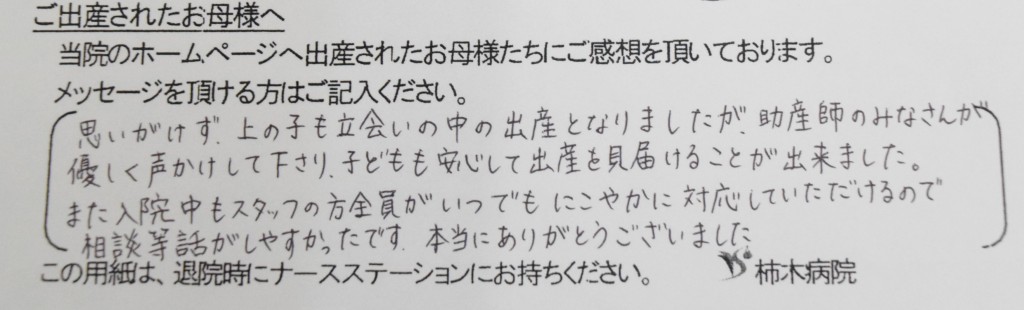 ご出産されたお母様へ
当院のホームページへ出産されたお母様たちにご感想を頂いております。
メッセージを頂ける方はご記入ください。
思いがけず、上の子も立会いの中の出産となりましたが、助産師のみなさんが
優しく声かけして下さり、子どもも安心して出産を見届けることが出来ました。
また入院中もスタッフの方全員がいつでもにこやかに対応していただけるので
相談等話がしやすかったです。本当にありがとうございました
この用紙は、退院時にナースステーションにお持ちください。 柿木病院